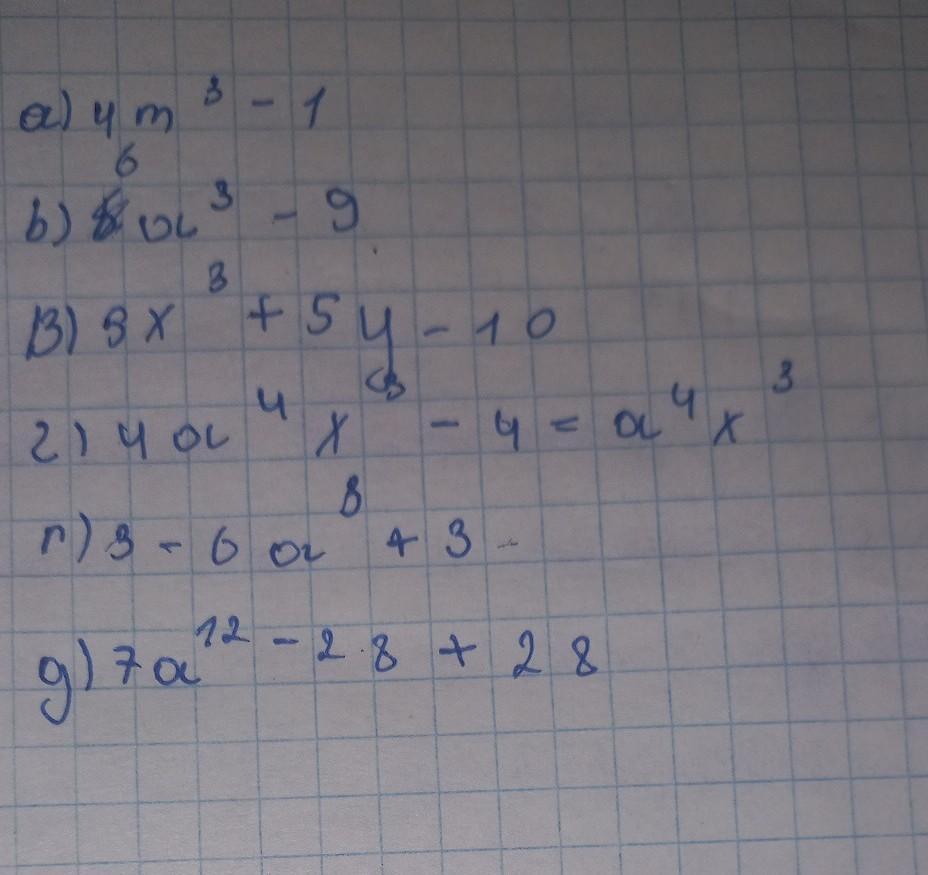 а) 4m³ - 1
b) 6a³ - 9
В) 3x³ + 5y - 10
г) 4a⁴x³ - 4 = a⁴x³
г) 3 - 6a⁸ + 3
д) 7a¹² - 28 + 28